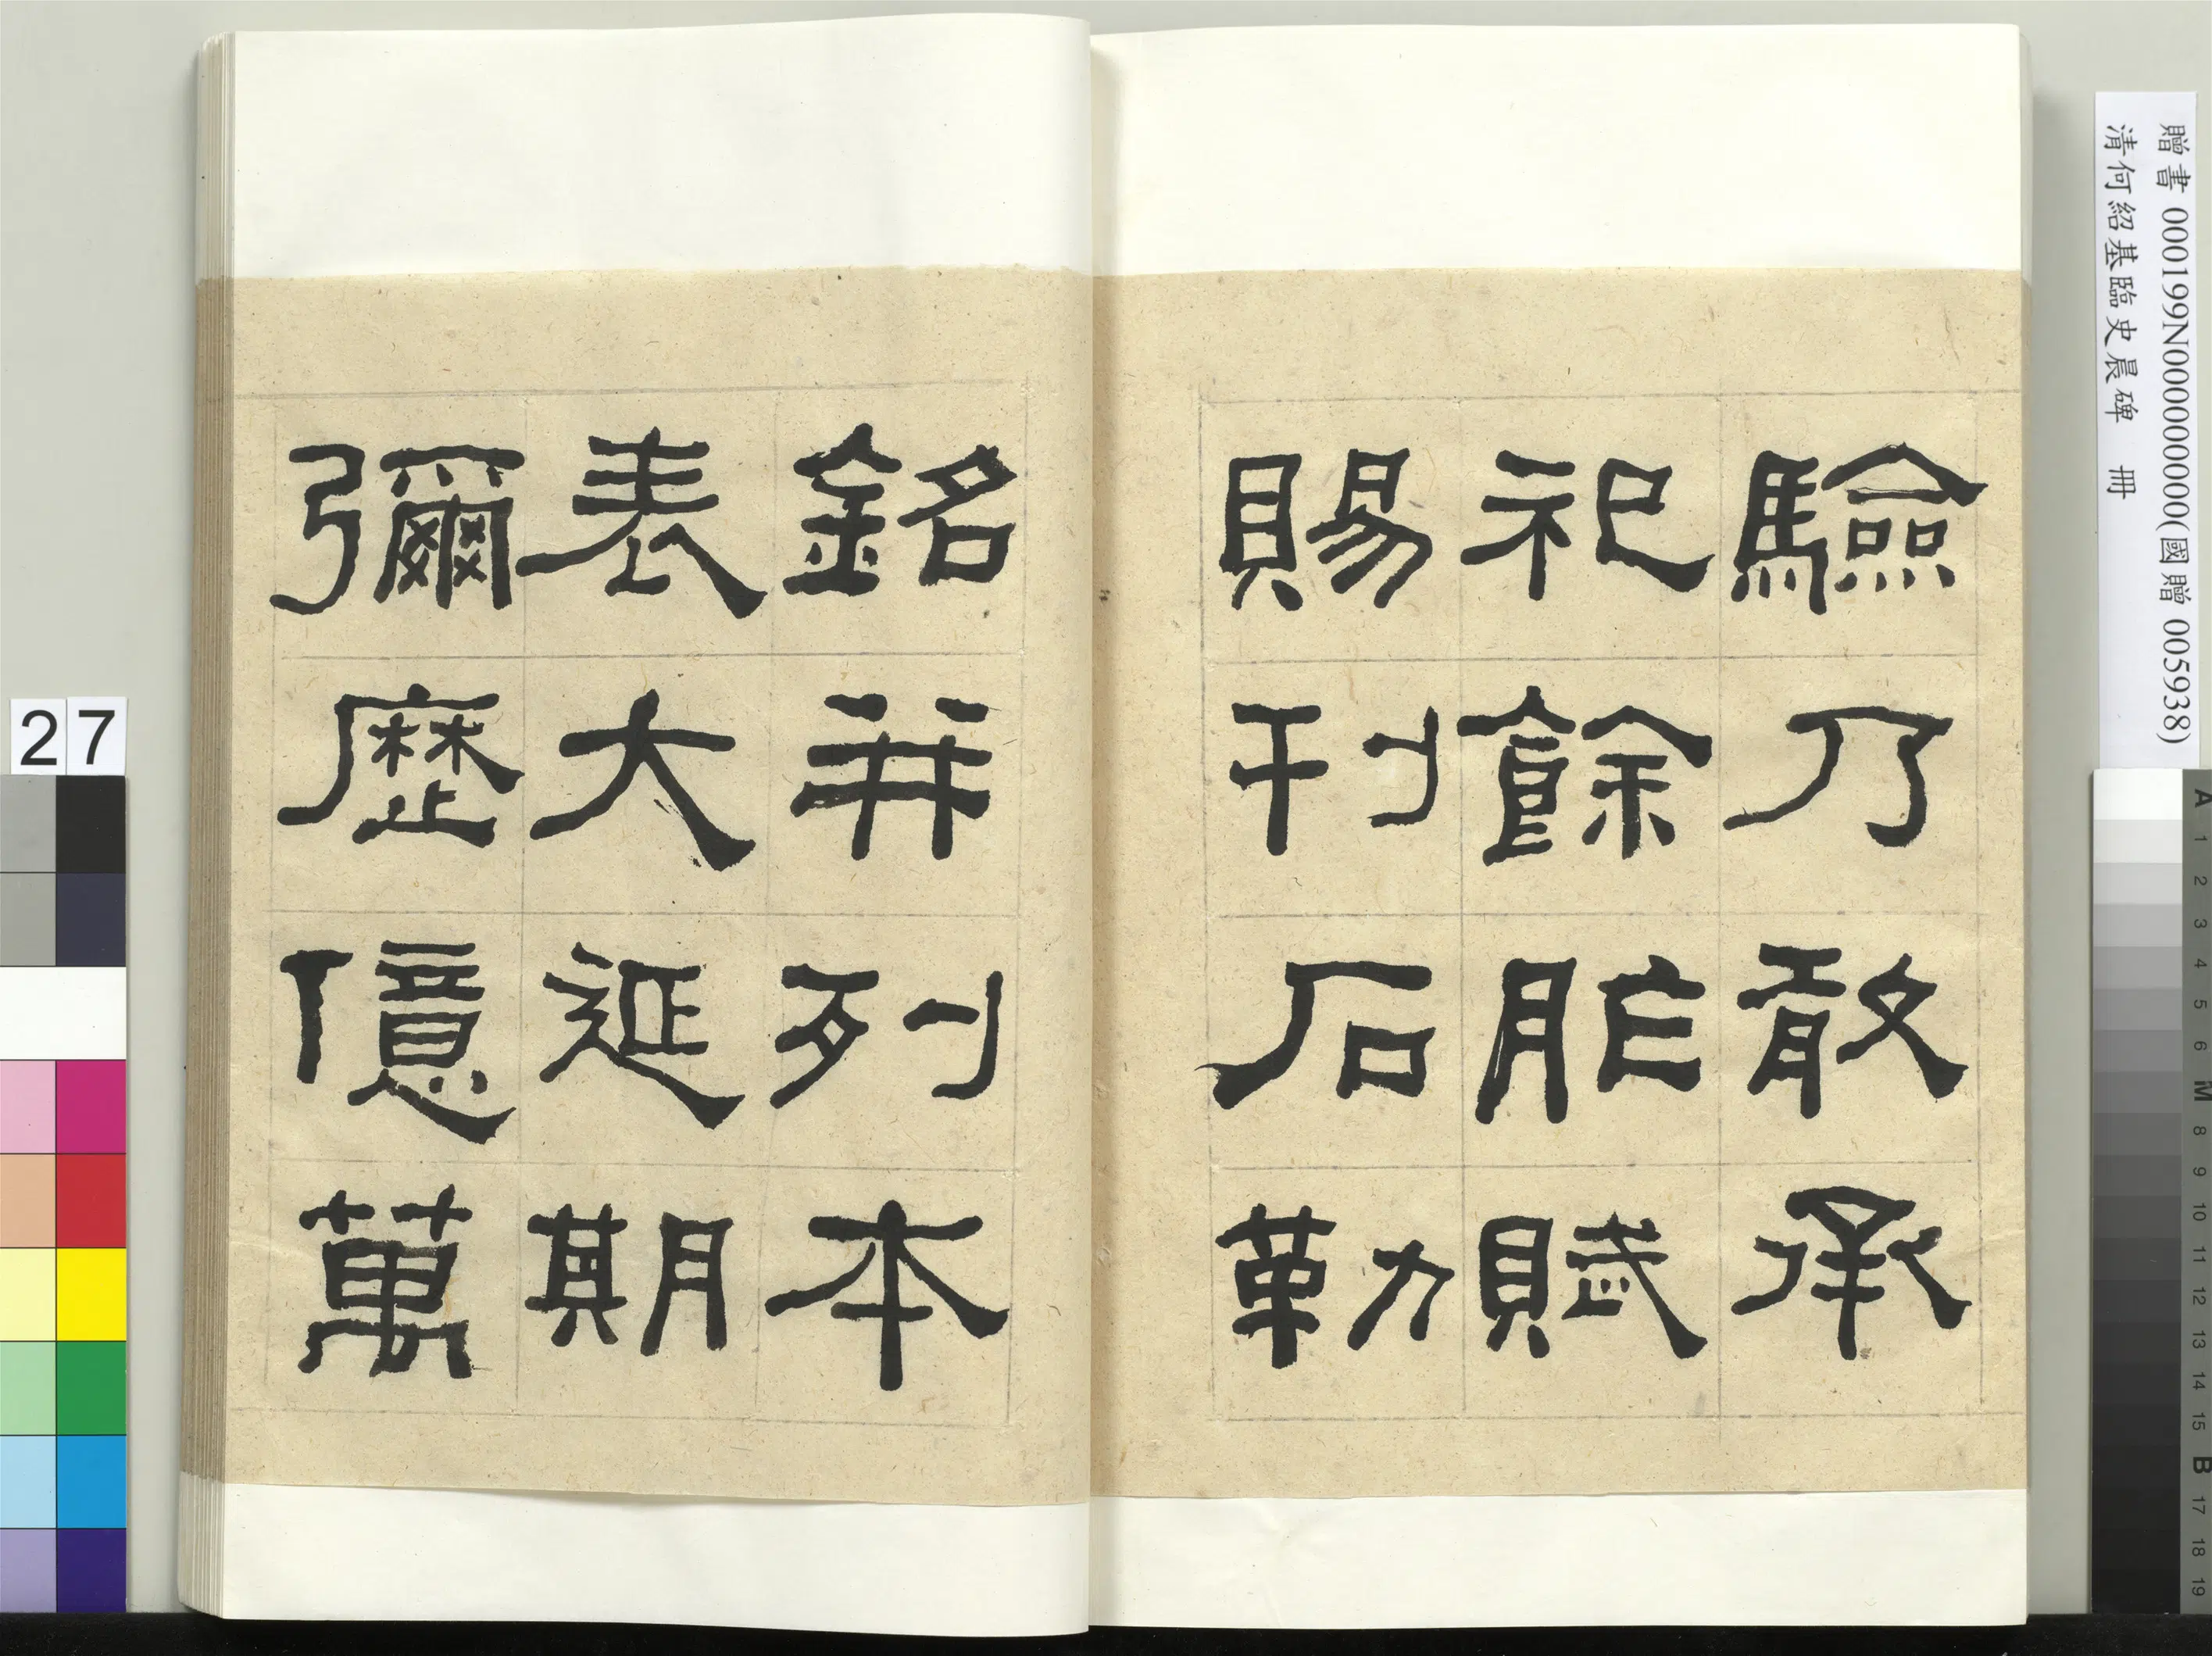 驗乃敢承
祀餘胙賦
賜刊石勒
銘并列本
表大延期
彌歷億萬
贈書 000199N000000000(國贈 005938)
清何紹基臨史晨碑 冊
27
A 1 2 3 4 5 6 M 8 9 10 11 12 13 14 15 B 17 18 19